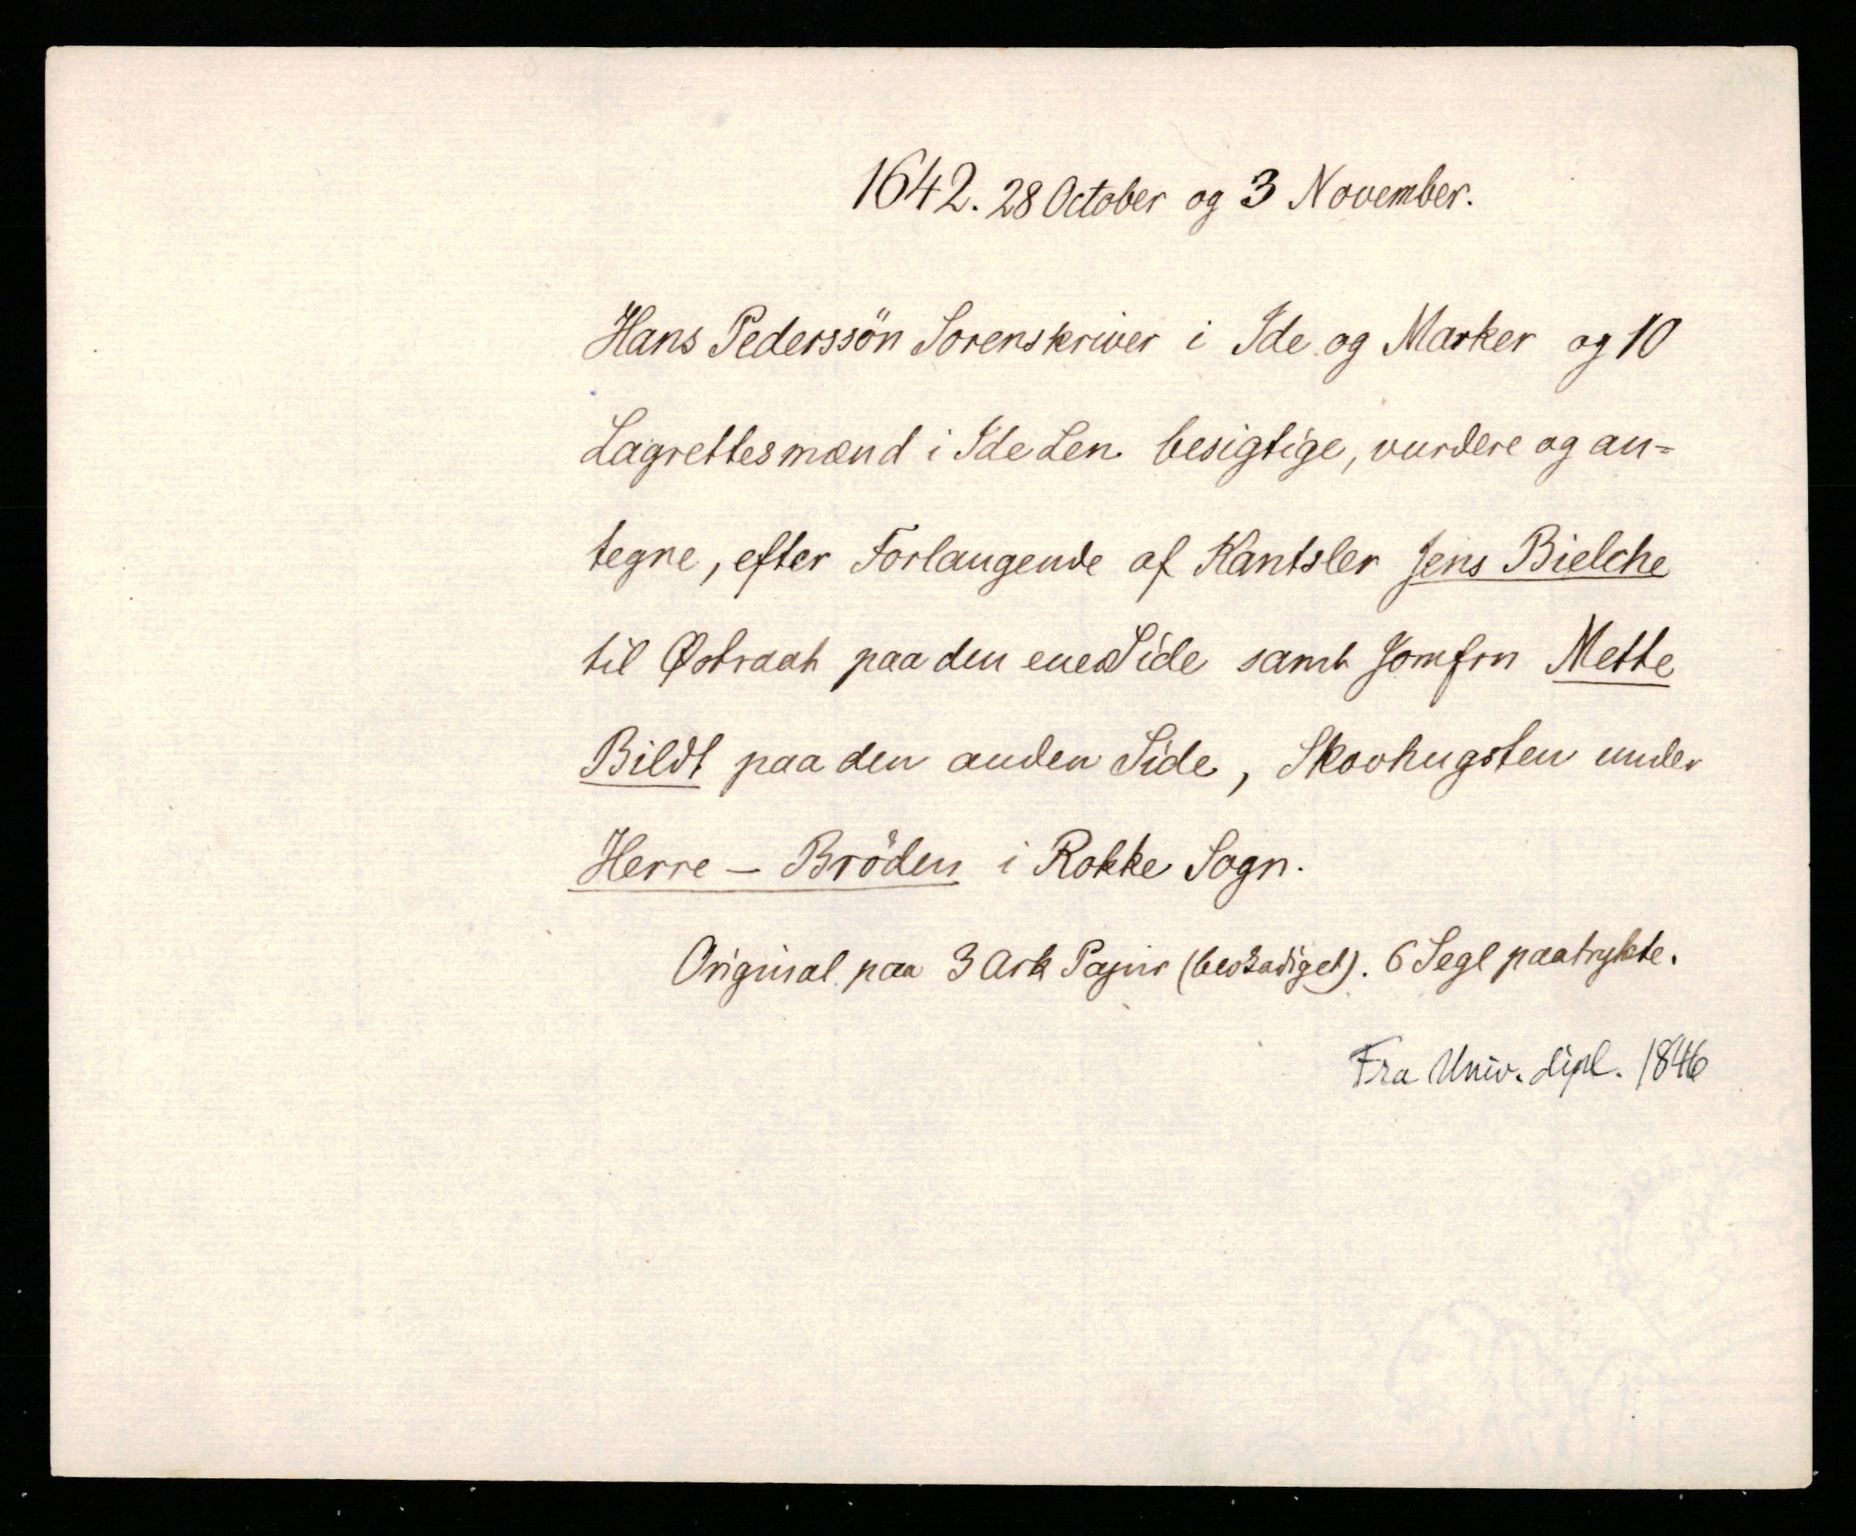 1642. 28 October og 3 November.
Hans Pederssön Sorenskriver i Ide og Marker og 10
Lagrettesmænd i Ide Len besigtige, vurdere og an=
tegne, efter Forlangende af Kantsler Jens Bielche
til Østraat paa den ene Side samt Jomfru Mette
Bildt paa den anden Side, Skovhugsten under
Herre - Bröden i Rokke Sogn.
Original paa 3 Ark Papir (beskadiget). 6 Segl paatrykte.
Fra Univ. dipl. 1846